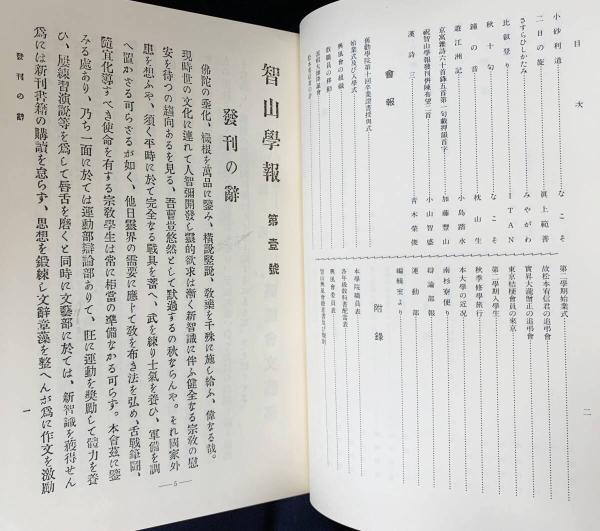 目次
小砂利道
なこそ
二日の旅
眞上範善
さすらひしかたみ
みやがわ
比叡登り
ITAN
秋十句
なこそ
鐘の音
枕山生
遊江洲記
小島踏水
京寓雜詩六十首錄五首第一句戴押韻首字
加藤豐山
祝智山學報發刊併陳希望二首
小山智盛
漢詩三
青木榮俊
會報
舊勸學院第十回卒業證書授與式
始業式及び入學式
興風會の組織
敎職員の移動
第二學期始業式
故松本宥信君の追弔會
實昇大僧正の追弔會
東京桔槔會員の來京
第二學期入學生
秋季修學旅行
本大學の近況
南杉寮便り
辯論部報
運動部
編輯室より
附錄
本學院職員表
各年級敎科書配當表
興風會委員表
二
智山學報 第壹號
發刊の辭
佛陀の垂化、機根を萬品に鑒み、橫說竪說、敎迹を千殊に施し給ふ、偉なる哉。
現時世の文化に連れて人智彌開發し靈的欲求は漸く新智識に伴ふ健全なる宗敎の慰
安を待つの趨向あるを見る、吾曹豈悠然として默過するの秋ならんや。それ國家外
患を想ふや、須く平時に於て完全なる戰具を蓄へ、武を練り士氣を養ひ、軍備を調
へ置かさる可らさるが如く、他日靈界の需要に應じて敎を布き法を弘め、舌戰筆鬪、
隨宜化導すべき使命を有する宗敎學生は常に相當の準備なかる可らず。本會茲に鑒
みる處あり、乃ち一面に於ては運動部辯論部ありて、旺に運動を奬勵して體力を養
ひ、屢練習演說等を爲して唇舌を磨くと同時に文藝部に於ては、新智識を獲得せん
爲には新刊書籍の購讀を怠らず、思想を鍛鍊し文辭章藻を整へんが爲に作文を激勵
發刊の辭
一
—5—